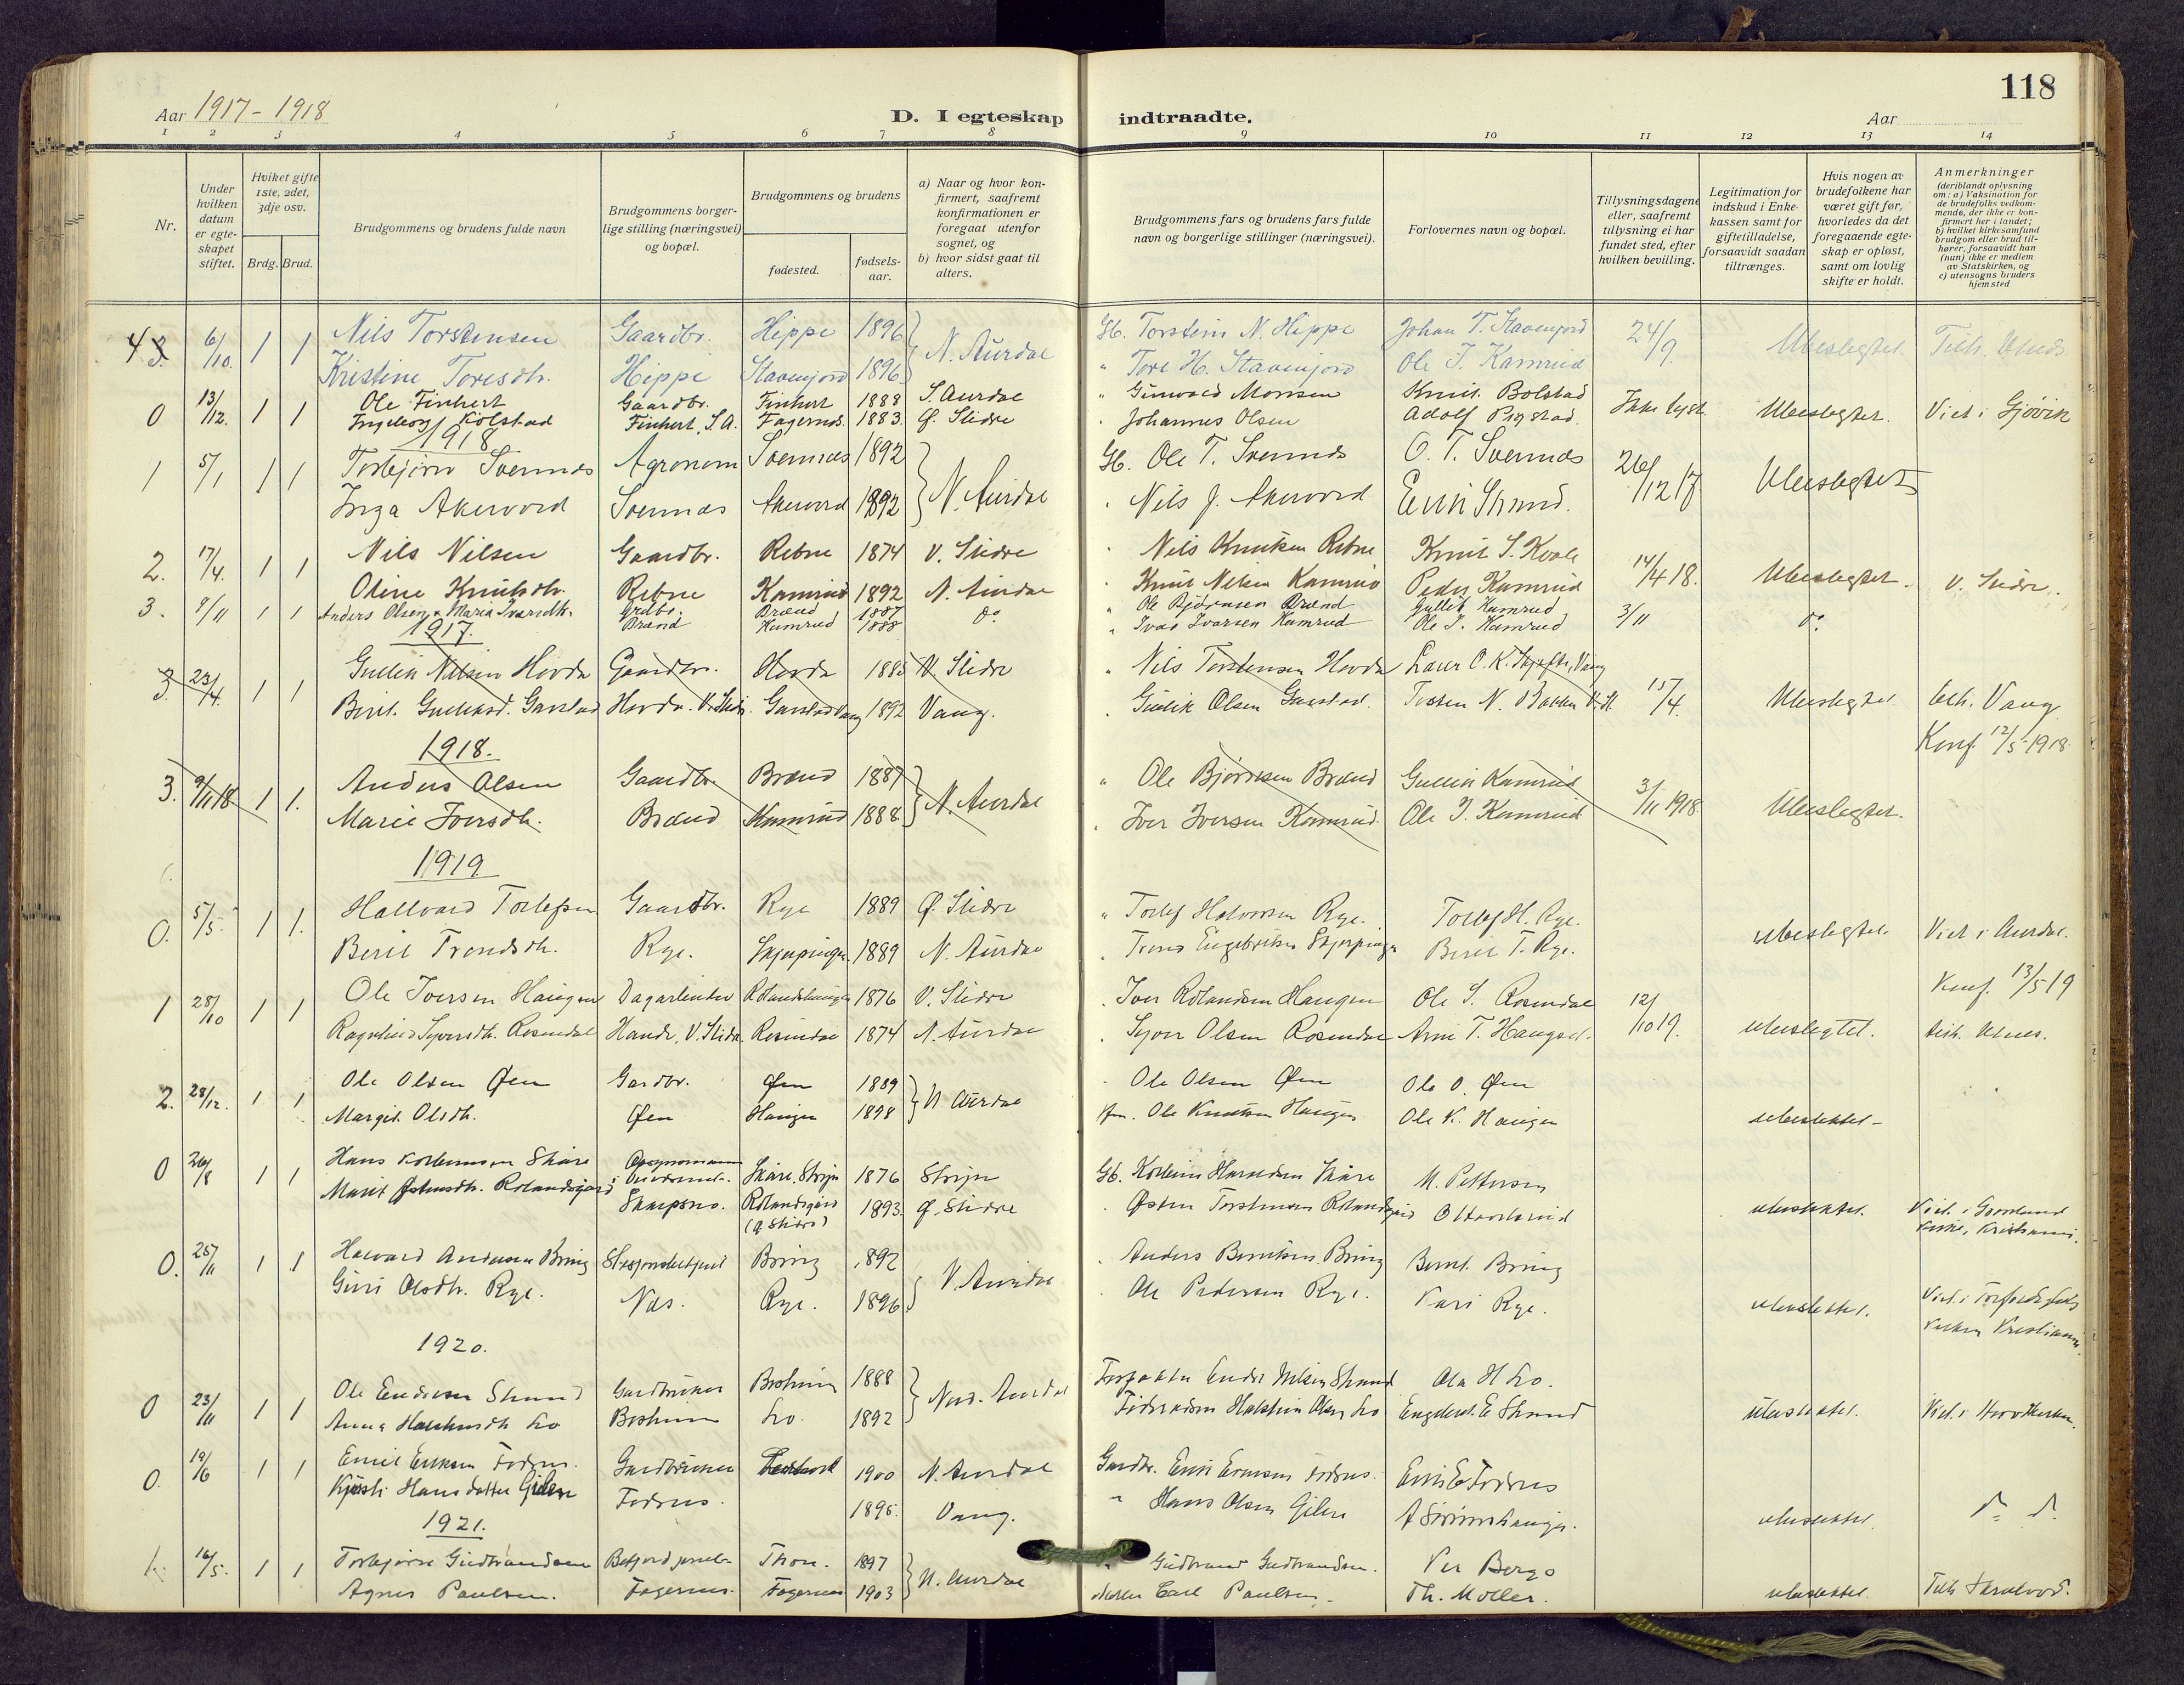 118
Aar 1917 - 1918
D. I egteskap indtraadte.
Aar
1 2 3 4 5 6 7 8 9 10 11 12 13 14
Nr.
Under hvilken datum er egteskapet stiftet.
Hvilket gifte 1ste, 2det, 3dje osv.
Brdg. Brud.
Brudgommens og brudens fulde navn
Brudgommens borgerlige stilling (næringsvei) og bopæl.
Brudgommens og brudens
fødested.
fødselsaar.
a) Naar og hvor konfirmert, saafremt konfirmationen er foregaat utenfor sognet, og
b) hvor sidst gaat til alters.
Brudgommens fars og brudens fars fulde navn og borgerlige stillinger (næringsvei).
Forlovernes navn og bopæl.
Tillysningsdagene eller, saafremt tillysning ei har fundet sted, efter hvilken bevilling.
Legitimation for indskud i Enkekassen samt for giftetilladelse, forsaavidt saadan tiltrænges.
Hvis nogen av brudefolkene har været gift før, hvorledes da det foregaaende egteskap er opløst, samt om lovlig skifte er holdt.
Anmerkninger (deriblandt oplysning om: a) Vaksination for de brudefolks vedkommende, der ikke er konfirmert her i landet; b) hvilket kirkesamfund brudgom eller brud tilhører, forsaavidt han (hun) ikke er medlem av Statskirken, og c) utensogns bruders hjemsted
4 3. 6/10. 1 1 Nils Torstensen Gaardbr. Hippe 1896 } N. Aurdal Gb. Torstein N. Hippe Johan T. Stavenjord 24/9. Ubeslegtet
Kristine Toresdtr. Hippe Stavenjord 1896 " Tore H. Stavenjord Ole I. Kamrud
0 13/12. 1 1 Ole Finhert Gaardbr. Finhert 1888 S. Aurdal " Monsen Knut Bolstad Ikke lyst. Ubeslegtet. Viet i Gjøvik
Ingeborg Kolstad Finhert, S.A. Fagernes 1883. Ø. Slidre " Johannes Olsen Adolf
1918
1 5/1 1 1 Torbjørn Svennes Agronom Svennes 1892 } N. Aurdal Gb. Ole T. Svennes O. T. Svennes 26/12 17 Ubeslegtet
Inga Akervord Svennes Akervord 1892 " Nils J. Akervord
2. 17/4. 1 1 Nils Nilsen Gaardbr. Rebne 1874 V. Slidre " Nils Knutsen Rebne Knut S. Kvale 14/4 18. Ubeslegtet. V. Slidre.
Oline Knutsdtr. Rebne Kamrud 1892 N. Aurdal " Knut Nilsen Kamrud Peder Kamrud
3. 9/11 1 1 Anders Olsen & Maria Ivarsdtr. Grdbr. Brænd Brænd Kamrud 1887 1888 do " Ole Bjørnsen Brænd " Ivar Ivarsen Kamrud Gullik Kamrud Ole I. Kamrud 3/11 do
1917.
3. 23/4. 1 1 Gullik Nilsen Hovda Gaardbr. Hovda 1885 V. Slidre " Nils Torstensen Hovda 15/4. Ubeslegtet Vang
Berit Gulliksd. Garstad Hovda. V. Slidre. Garstad Vang 1892 Vang. " Gullik Olsen Garstad Torsten N. Bakken V. Sl.
Konf. 12/5 1918
1918.
3. 9/11 18 1 1. Anders Olsen Gaardbr. Brænd 1887 } N. Aurdal " Ole Bjørnsen Brænd Gullik Kamrud 3/11 1918. Ubeslegtet.
Marie Iversdtr. Brænd Kamrud 1888 " Iver Iversen Kamrud. Ole I. Kamrud
1919
0. 5/5. 1 1. Hallvard Torlefsen Gaardbr. Rye 1889 Ø. Slidre " Torlef Halvorsen Rye. Torlef H. Rye. Ubeslegtet. Viet i Aurdal.
Berit Trondsdtr. Rye. 1889 N. Aurdal " Trond Engebretsen Berit T. Rye.
Konf. 13/5 19
1 28/10 1 1 Ole Iversen Haugen Dagarbeider 1876 V. Slidre " Iver Rolandsen Haugen Ole S. Rosendal 12/10 19. Ubeslegtet.
Ragnhild Syversdtr. Rosendal V. Slidre Rosendal 1874 N. Aurdal " Syver Olsen Rosendal Arne T. Haugen
2. 28/12. 1 1 Ole Olsen Øen Gardbr. Øen 1889 } N. Aurdal " Ole Olsen Øen Ole O. Øen ubeslektet
Margit Olsdtr. Øen Haugen 1898 Ole Knutsen Haugen Ole K. Haugen
0 26/8 1 1 Hans Skåre Skåre, Stryn 1876 Stryn Gb. Skåre M. Pettersen ubeslektet. Viet i Grønland kirke, Kristiania.
Marit Østensdtr. Rolandsgard Skarpsno. Rolandsgard (Ø Slidre) 1893. Ø. Slidre " Østen Torstensen Rolandsgard
0. 25/11 1 1 Halvard Andersen Bring Bring 1892 } N. Aurdal " Anders Berntsen Bring Bernt Bring ubeslektet.
Guri Olsdtr. Rye. Næs. Rye. 1896 " Ole Pedersen Rye. Kari Rye.
1920.
0 23/11 1 1 Ole Endresen Strand Gardbruker 1888 } Nord. Aurdal Endre Nilsen Strand Ola H Lo. ubeslektet.
Anna Lo Lo. 1892 Halstein Olsen Lo Engebret E Strand
0. 19/6 1 1 Emil Eriksen Fodnes. Gardbruker 1900 N. Aurdal Gardbr. Erik Fodnes. Erik E Fodnes ubeslektet. do do
Kjersti Hansdatter Gilen Fodnes. 1895. Vang. " Hans Olsen Gilen
1921.
1. 16/5. 1 1 Torbjørn Gudbrandsen Thon. 1897 } N. Aurdal " Gudbrand Gudbrandsen. Per Berge ubeslektet
Agnes Paulsen. Fagernes. Fagernes 1903 Møller Carl Paulsen. Th. Møller.